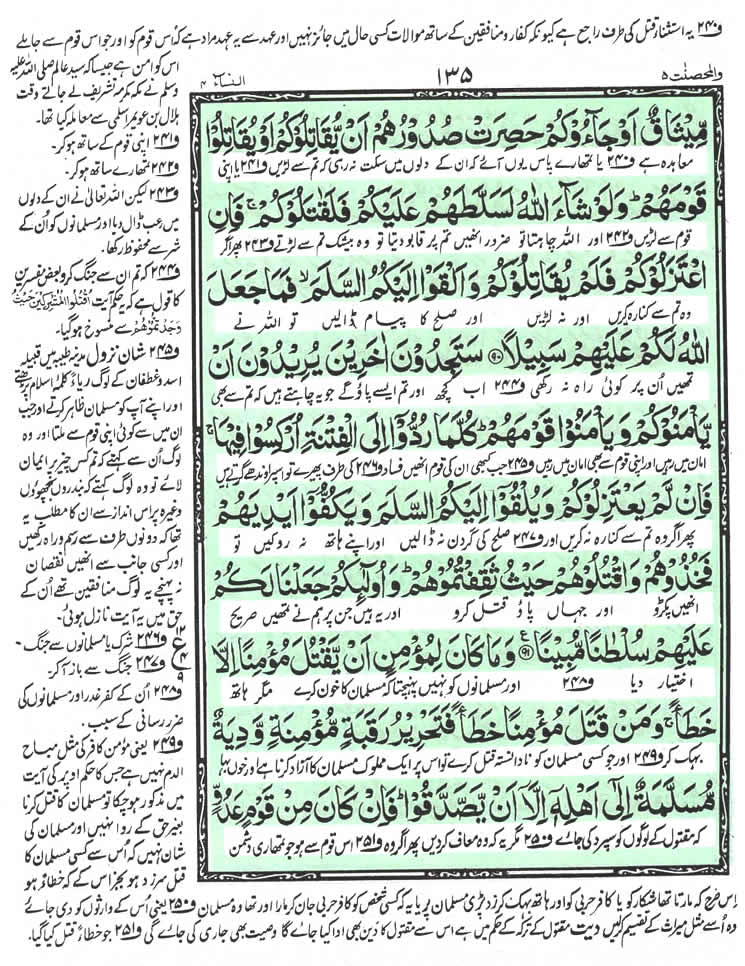 و۲۴۰ یہ استثناء قتل کی طرف راجع ہے کیونکہ کفار و منافقین کے ساتھ موالات کسی حال میں جائز نہیں اور عہد سے یہ عہد مراد ہے کہ اس قوم کو اور جو اس قوم سے جا ملے
والمحصنٰت ۵
۱۳۵
النساء ۴
مِّيْثَاقٌ اَوْ جَآءُوْكُمْ حَصِرَتْ صُدُوْرُهُمْ اَنْ يُّقَاتِلُوْكُمْ اَوْ يُقَاتِلُوْا
معاہدہ ہے و۲۴۰ یا تمہارے پاس یوں آئے کہ ان کے دلوں میں سکت نہ رہی کہ تم سے لڑیں و۲۴۱ یا اپنی
قَوْمَهُمْ ؕ وَلَوْ شَآءَ اللّٰهُ لَسَلَّطَهُمْ عَلَيْكُمْ فَلَقٰتَلُوْكُمْ ۚ فَاِنِ
قوم سے لڑیں و۲۴۲ اور اللہ چاہتا تو ضرور انھیں تم پر قابو دیتا تو وہ بیشک تم سے لڑتے و۲۴۳ پھر اگر
اعْتَزَلُوْكُمْ فَلَمْ يُقَاتِلُوْكُمْ وَاَلْقَوْا اِلَيْكُمُ السَّلَمَ ۙ فَمَا جَعَلَ
وہ تم سے کنارہ کریں اور نہ لڑیں اور صلح کا پیام ڈالیں تو اللہ نے
اللّٰهُ لَكُمْ عَلَيْهِمْ سَبِيْلًا ﴿۹۰﴾ سَتَجِدُوْنَ اٰخَرِيْنَ يُرِيْدُوْنَ اَنْ
تمھیں اُن پر کوئی راہ نہ رکھی و۲۴۴ اب کچھ اور تم ایسے پاؤ گے جو یہ چاہتے ہیں کہ تم سے بھی
يَّاْمَنُوْكُمْ وَيَاْمَنُوْا قَوْمَهُمْ ؕ كُلَّمَا رُدُّوْٓا اِلَى الْفِتْنَةِ اُرْكِسُوْا فِيْهَا ۚ
امان میں رہیں اور اپنی قوم سے بھی امان میں رہیں و۲۴۵ جب کبھی ان کی قوم انھیں فساد و۲۴۶ کی طرف پھیرے تو اس پر اوندھے گرتے ہیں
فَاِنْ لَّمْ يَعْتَزِلُوْكُمْ وَيُلْقُوْٓا اِلَيْكُمُ السَّلَمَ وَيَكُفُّوْٓا اَيْدِيَهُمْ
پھر اگر وہ تم سے کنارہ نہ کریں اور و۲۴۷ صلح کی گردن نہ ڈالیں اور اپنے ہاتھ نہ روکیں تو
فَخُذُوْهُمْ وَاقْتُلُوْهُمْ حَيْثُ ثَقِفْتُمُوْهُمْ ؕ وَاُولٰٓئِكُمْ جَعَلْنَا لَكُمْ
انھیں پکڑو اور جہاں پاؤ قتل کرو اور یہ ہیں جن پر ہم نے تمھیں صریح
عَلَيْهِمْ سُلْطٰنًا مُّبِيْنًا ﴿۹۱﴾ وَمَا كَانَ لِمُؤْمِنٍ اَنْ يَّقْتُلَ مُؤْمِنًا اِلَّا
اختیار دیا و۲۴۸ اور مسلمانوں کو نہیں پہنچتا کہ مسلمان کا خون کرے مگر ہاتھ
خَطَـًٔا ۚ وَمَنْ قَتَلَ مُؤْمِنًا خَطَـًٔا فَتَحْرِيْرُ رَقَبَةٍ مُّؤْمِنَةٍ وَّدِيَةٌ
بہک کر و۲۴۹ اور جو کسی مسلمان کو نادانستہ قتل کرے تو اس پر ایک مملوک مسلمان کا آزاد کرنا ہے اور خوں بہا
مُّسَلَّمَةٌ اِلٰٓى اَهْلِهٖٓ اِلَّآ اَنْ يَّصَّدَّقُوْا ؕ فَاِنْ كَانَ مِنْ قَوْمٍ عَدُوٍّ
کہ مقتول کے لوگوں کو سپرد کی جائے و۲۵۰ مگر یہ کہ وہ معاف کردیں پھر اگر وہ و۲۵۱ اس قوم سے ہو جو تمھاری دشمن
اس کو امن ہے جیسا کہ سید عالم صلی اللہ علیہ
وسلم نے مکہ مکرمہ تشریف لے جاتے وقت
ہلال بن عویمر اسلمی سے معاملہ کیا تھا۔
و۲۴۱ اپنی قوم کے ساتھ ہو کر۔
و۲۴۲ تمہارے ساتھ ہو کر۔
و۲۴۳ لیکن اللہ تعالیٰ نے ان کے دلوں
میں رعب ڈال دیا اور مسلمانوں کو اُن کے
شر سے محفوظ رکھا۔
و۲۴۴ کہ تم ان سے جنگ کرو بعض مفسرین
کا قول ہے کہ یہ حکم آیت اُقْتُلُوا الْمُشْرِكِيْنَ حَيْثُ
وَجَدْتُّمُوْهُمْ سے منسوخ ہو گیا۔
و۲۴۵ شان نزول مدینہ طیبہ میں قبیلہ
اسد و غطفان کے لوگ ریاءً کلمۂ اسلام پڑھتے
اور اپنے آپ کو مسلمان ظاہر کرتے اور جب
ان میں سے کوئی اپنی قوم سے ملتا اور وہ
لوگ اُن سے کہتے کہ تم کس چیز پر ایمان
لائے تو وہ لوگ کہتے کہ بندروں بچھوؤں
وغیرہ پر اس انداز سے ان کا مطلب یہ
تھا کہ دونوں طرف سے رسم و راہ رکھیں
اور کسی جانب سے انھیں نقصان
نہ پہنچے یہ لوگ منافقین تھے اُن کے
حق میں یہ آیت نازل ہوئی۔
و۲۴۶ شرک یا مسلمانوں سے جنگ۔
و۲۴۷ جنگ سے باز آکر
و۲۴۸ اُن کے کفر غدر اور مسلمانوں کی
ضرر رسانی کے سبب۔
و۲۴۹ یعنی مؤمن کافر کی مثل مباح
الدم نہیں ہے جس کا حکم اوپر کی آیت
میں مذکور ہو چکا تو مسلمان کا قتل کرنا
بغیر حق کے روا نہیں اور مسلمان کی
شان نہیں کہ اُس سے کسی مسلمان کا
قتل سرزد ہو بجز اس کے کہ خطاءً ہو
اِس طرح کہ مارتا تھا شکار کو یا کافر حربی کو اور ہاتھ بہک کر زد پڑی مسلمان پر یا یہ کہ کسی شخص کو کافر حربی جان کر مارا اور تھا وہ مسلمان و۲۵۰ یعنی اُس کے وارثوں کو دی جائے
وہ اُسے مثل میراث کے تقسیم کرلیں دیت مقتول کے ترکہ کے حکم میں ہے اس سے مقتول کا دَین بھی ادا کیا جائے گا وصیت بھی جاری کی جائے گی و۲۵۱ جو خطاءً قتل کیا گیا۔